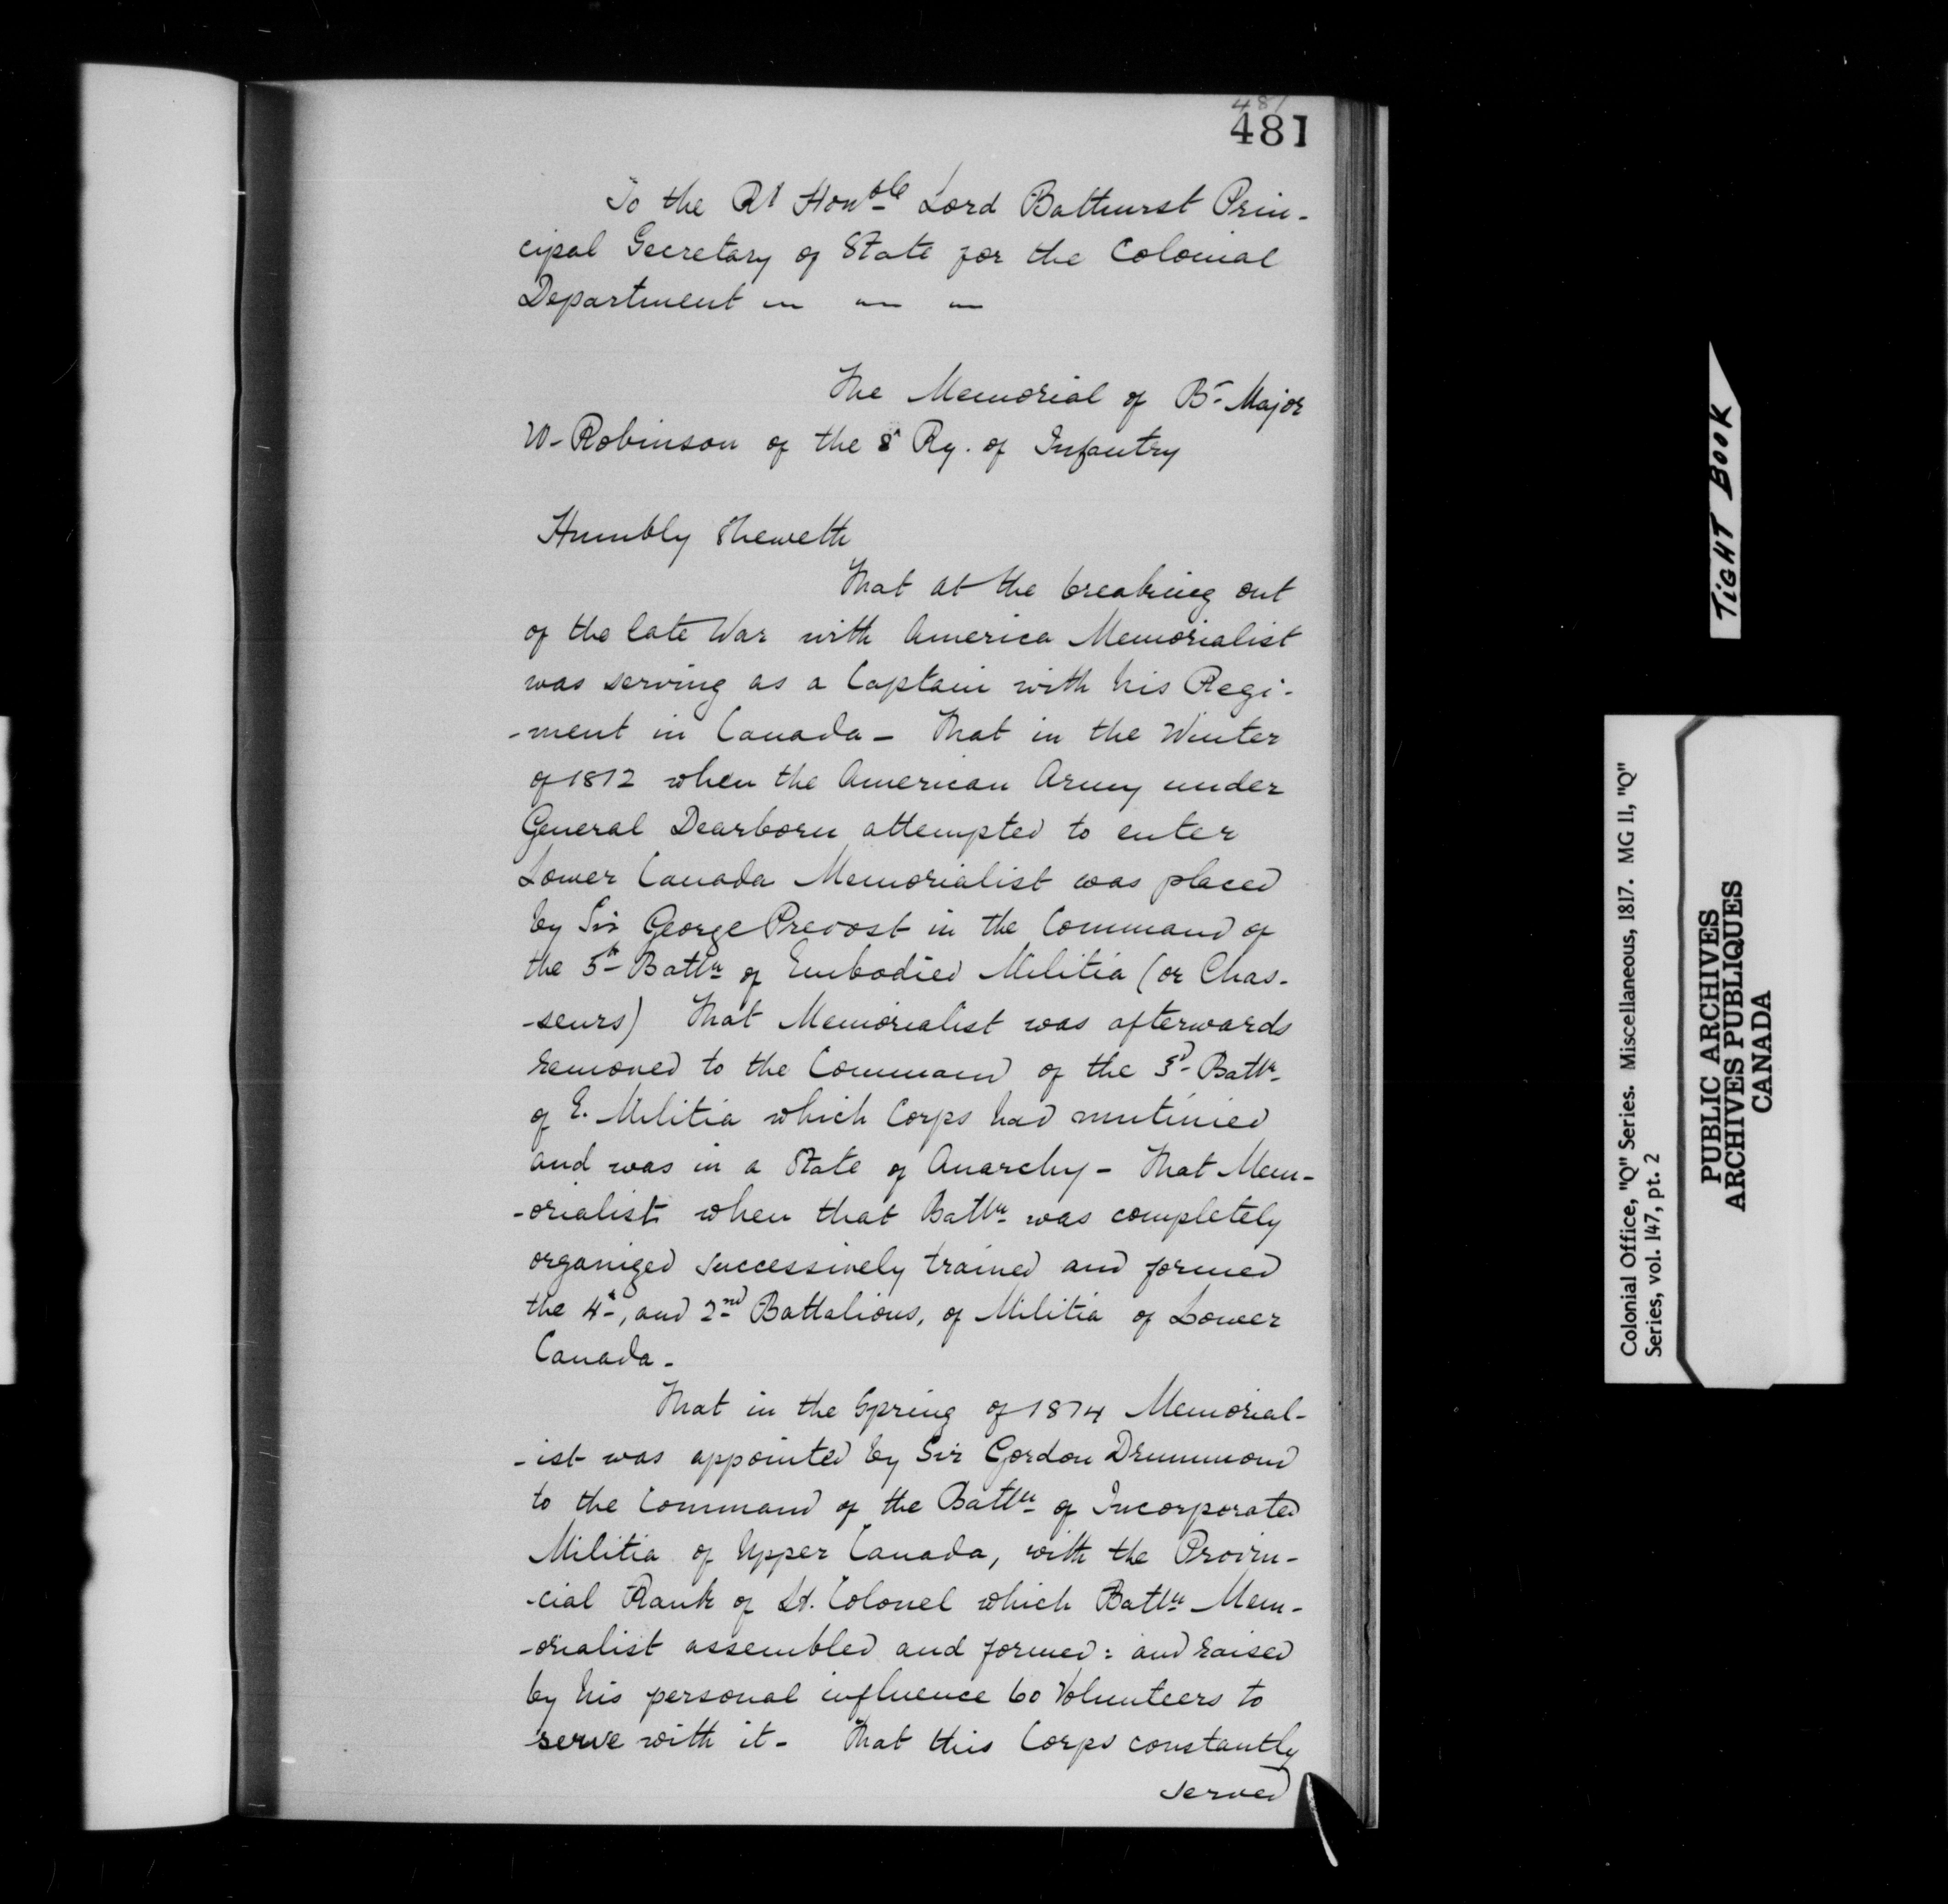 481
481
To the Rt Honble Lord Bathurst Prin-
cipal Secretary of State for the Colonial
Department — — —
The Memorial of Bt Major
W. Robinson of the 8th Rg. of Infantry
Humbly Sheweth
That at the breaking out
of the late War with America Memorialist
was serving as a Captain with his Regi-
-ment in Canada - That in the Winter
of 1812 when the American Army under
General Dearborn attempted to enter
Lower Canada Memorialist was placed
by Sir George Prevost in the Command of
the 5th Battn of Embodied Militia (or Chas-
-seurs) That Memorialist was afterwards
removed to the Command of the 3d Battn
of E. Militia which Corps had mutinied
and was in a State of Anarchy - That Mem-
-orialist when that Battn was completely
organized successively trained and formed
the 4th, and 2nd Battalions, of Militia of Lower
Canada -
That in the Spring of 1814 Memorial-
-ist was appointed by Sir Gordon Drummond
to the Command of the Battn of Incorporated
Militia of Upper Canada, with the Provin-
-cial Rank of Lt. Colonel which Battn Mem-
-orialist assembled and formed: and raised
by his personal influence 60 Volunteers to
serve with it - That this Corps constantly
served
TIGHT BOOK
Colonial Office, "Q" Series. Miscellaneous, 1817. MG 11, "Q"
Series, vol. 147, pt. 2
PUBLIC ARCHIVES
ARCHIVES PUBLIQUES
CANADA